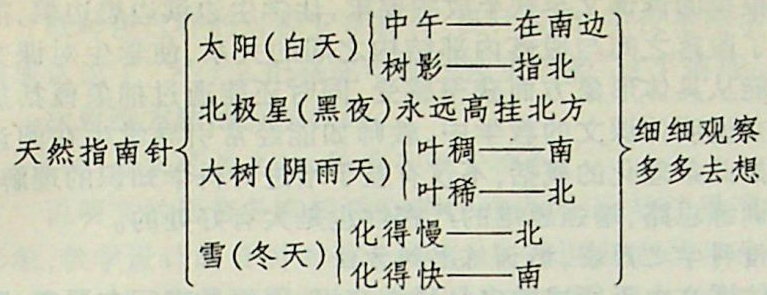 中午——在南边
太阳(白天)
树影——指北
北极星(黑夜)永远高挂北方
天然指南针
细细观察
多多去想
叶稠——南
大树(阴雨天)
叶稀——北
化得慢——北
雪(冬天)
化得快——南